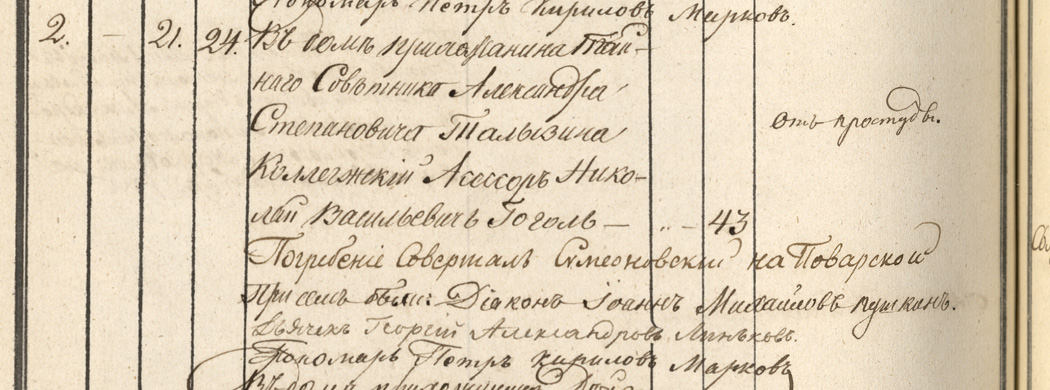 Пономарь Петръ Кириловъ Марковъ.
2. — 21. 24. Въ домѣ прихожанина Тай-
наго Совѣтника Александра
Степановича Талызина
отъ простуды.
Коллежскій Асессоръ Нико-
лай Васильевичь Гоголь — „ — 43
Погребеніе Совершалъ Симеоновскій на Поварской
При семъ были: Діаконъ Іоаннъ Михайловъ Пушкинъ.
Дьячекъ Георгій Александровъ Линьковъ.
Пономарь Петръ Кириловъ Марковъ
Въ домѣ